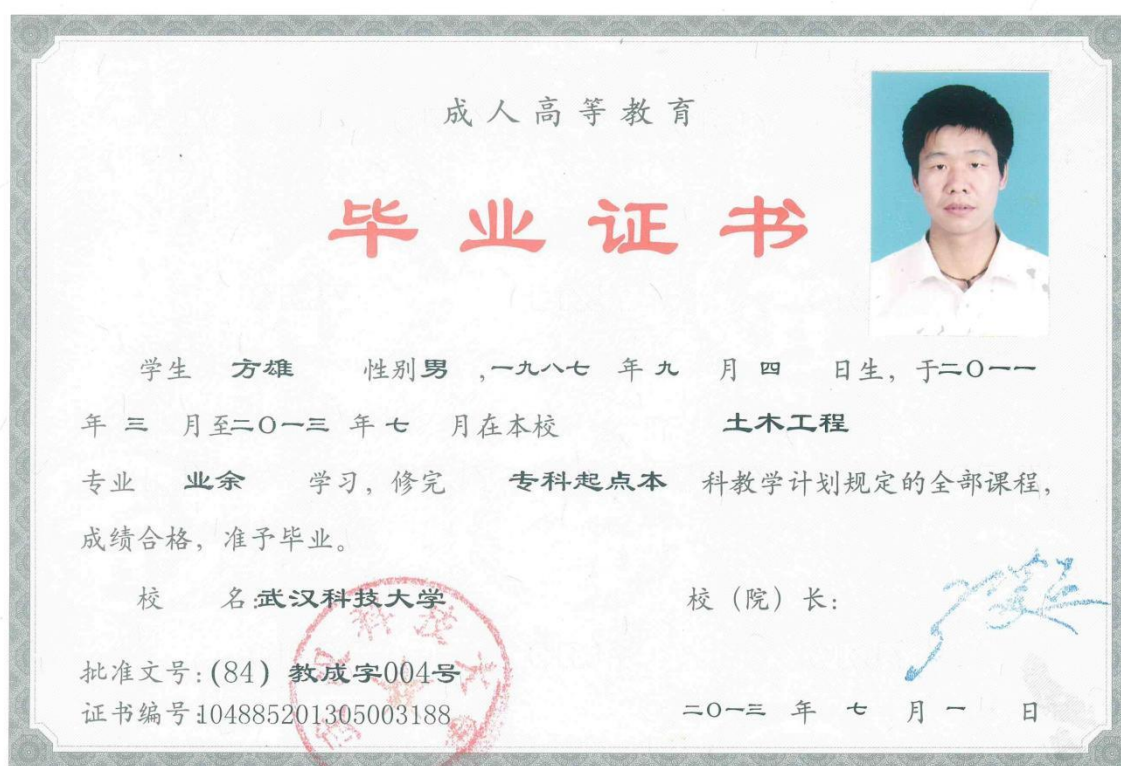 成人高等教育
毕业证书
学生 方雄 性别男 ,一九八七 年 九 月 四 日生, 于二O一一
年 三 月至二O一三 年 七 月在本校 土木工程
专业 业余 学习, 修完 专科起点本 科教学计划规定的全部课程,
成绩合格, 准予毕业。
校 名:武汉科技大学 校 (院) 长:
批准文号:(84) 教成字004号
证书编号:104885201305003188 二O一三 年 七 月 一 日